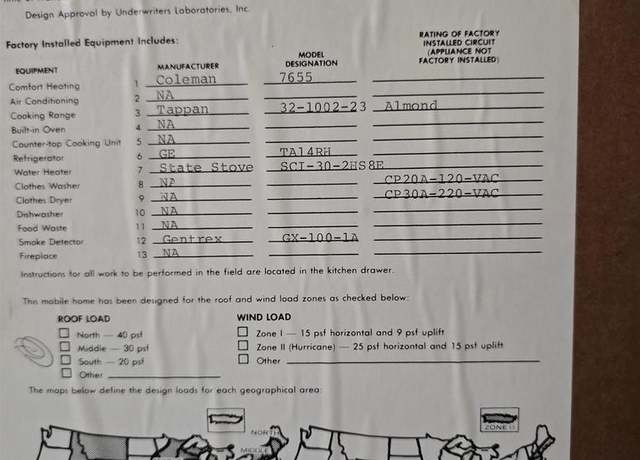 Design Approval by Underwriters Laboratories, Inc.
Factory Installed Equipment Includes:
EQUIPMENT MANUFACTURER MODEL DESIGNATION RATING OF FACTORY INSTALLED CIRCUIT (APPLIANCE NOT FACTORY INSTALLED)
Comfort Heating 1 Coleman 7655
Air Conditioning 2 NA
Cooking Range 3 Tappan 32-1002-23 Almond
Built-in Oven 4 NA
Counter-top Cooking Unit 5 NA
Refrigerator 6 GE TA14RH
Water Heater 7 State Stove SCT-30-2HS8E
Clothes Washer 8 NA CP20A-120-VAC
Clothes Dryer 9 NA CP30A-220-VAC
Dishwasher 10 NA
Food Waste 11 NA
Smoke Detector 12 Gentrex GX-100-1A
Fireplace 13 NA
Instructions for all work to be performed in the field are located in the kitchen drawer.
This mobile home has been designed for the roof and wind load zones as checked below:
ROOF LOAD WIND LOAD
North — 40 psf Zone I — 15 psf horizontal and 9 psf uplift
Middle — 30 psf Zone II (Hurricane) — 25 psf horizontal and 15 psf uplift
South — 20 psf Other
Other
The maps below define the design loads for each geographical area:
NORTH ZONE II
MIDDLE